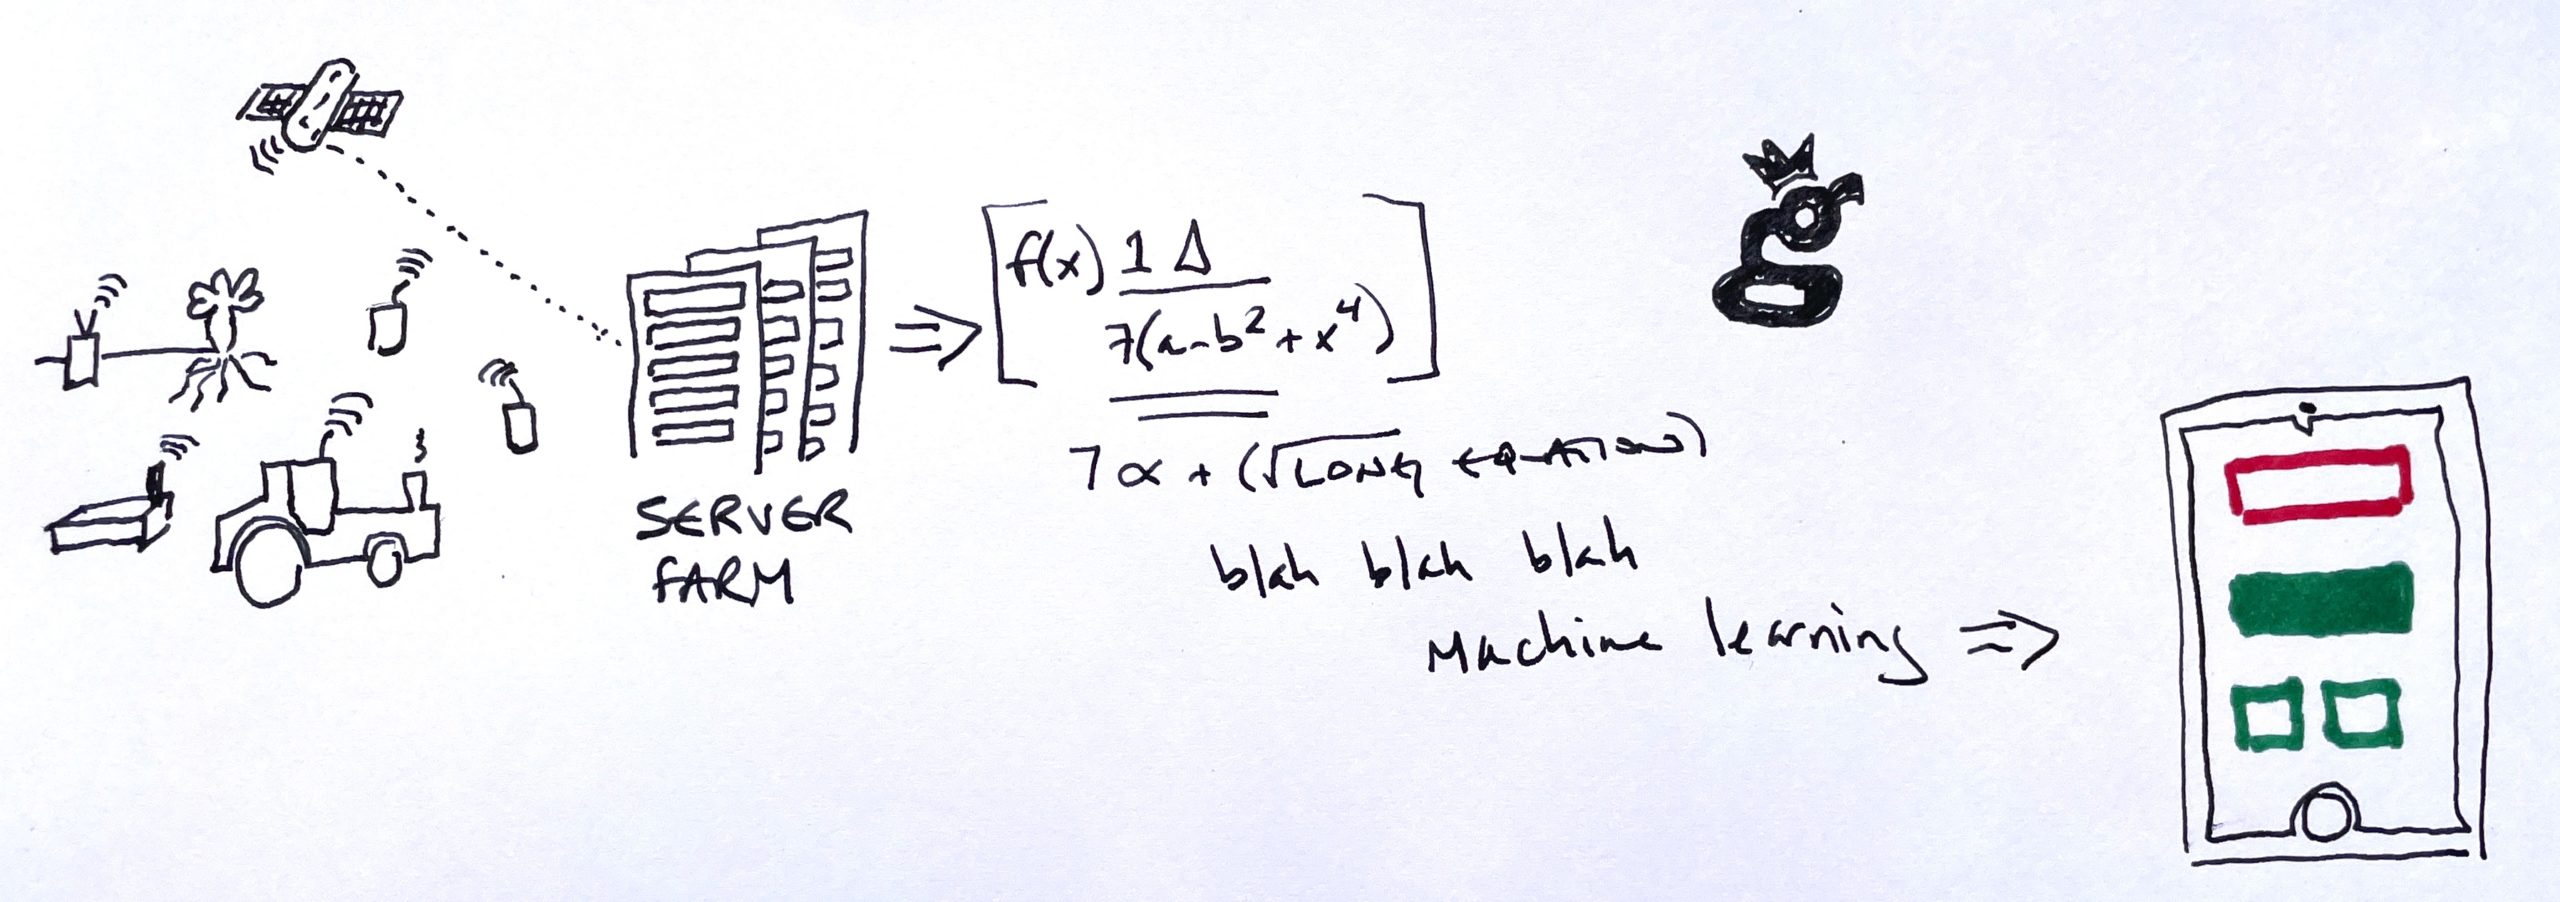 SERVER
FARM
f(x) 1 Δ
7(a-b²+x⁴)
7α + (√LONG EQUATION)
blah blah blah
Machine learning
g